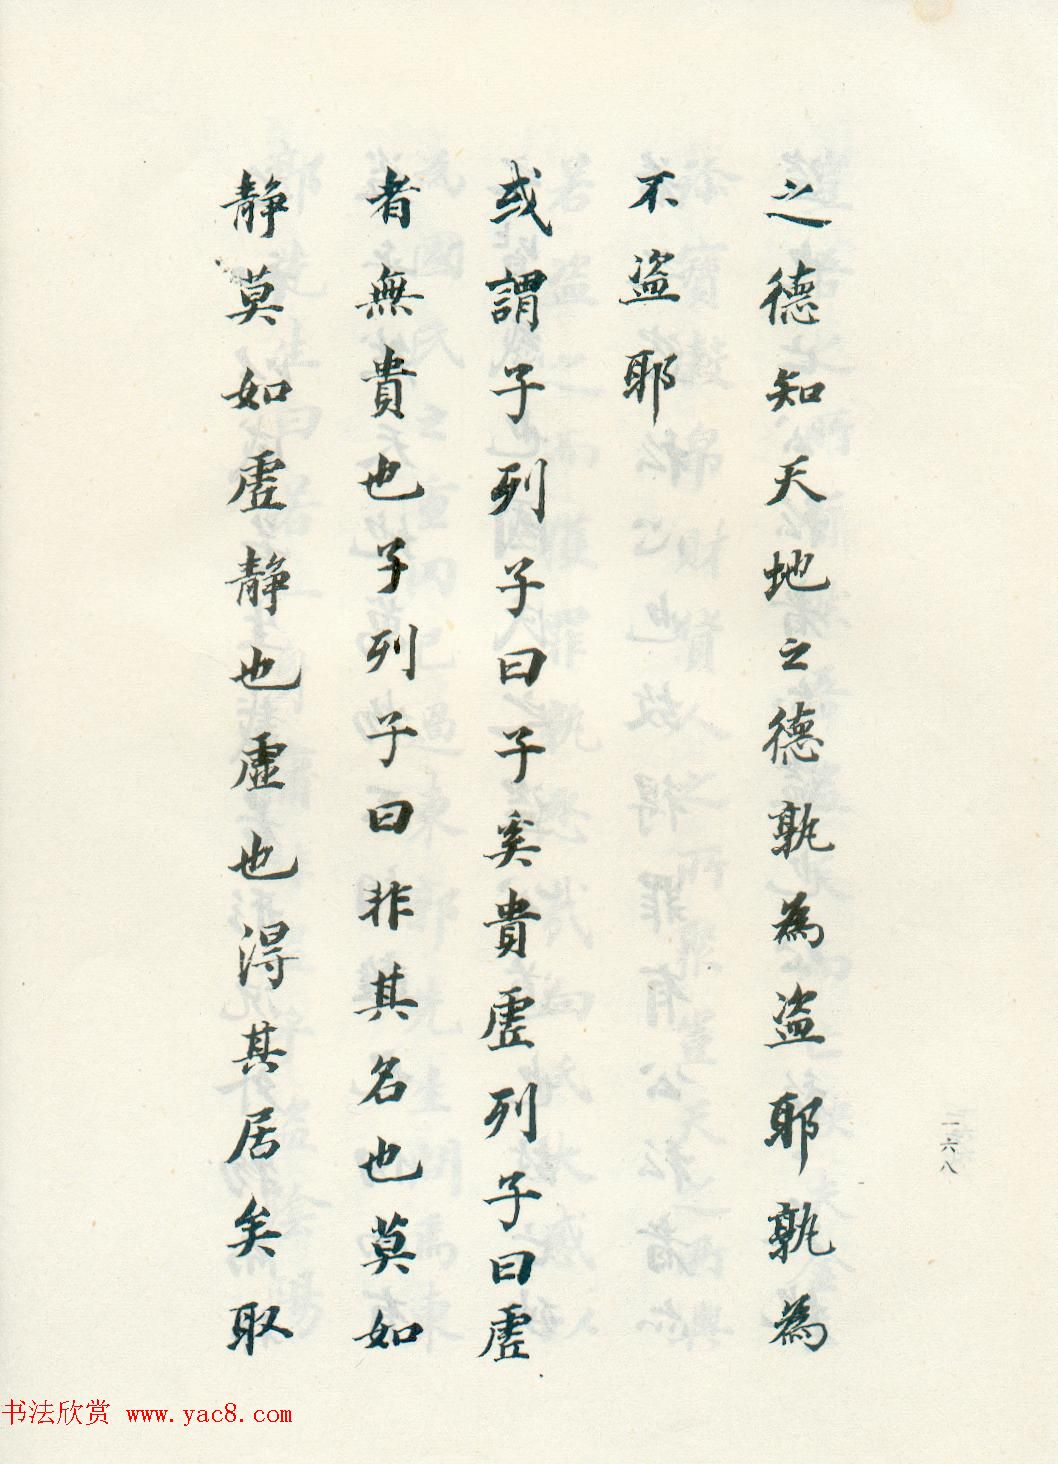 之德知天地之德孰為盗耶孰為
不盗耶
或謂子列子曰子奚貴虗列子曰虗
者無貴也子列子曰非其名也莫如
静莫如虗静也虚也得其居矣取
二六八
书法欣赏 www.yac8.com